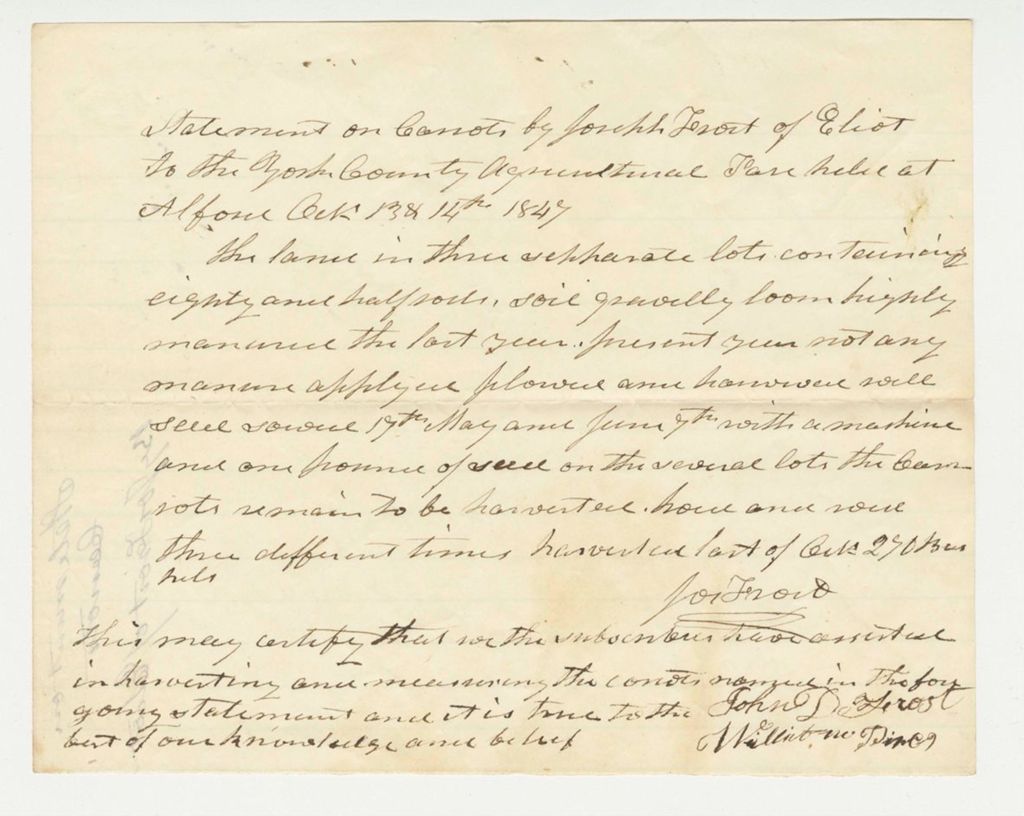 Statement on Carrots by Joseph Frost of Eliot
to the York County Agricultural Fare held at
Alford Oct 13 & 14th 1847
the land in three sepharate lots containing
eighty and half rods. soil gravelly loom highly
manured the last year. present year not any
manure applyed plowed and harrowed well
seed sowed 17th May and June 7th with a machine
and one pound of seed on the several lots the Car
rots remain to be harvested. hoed and weed
three different times harvested last of Oct 270 Bus
hels
Jos Frost
this may certify that we the subscribers have assisted
in harvesting and measuring the carrots named in the for
going statement and it is true to the
best of our knowledge and belief
John D Frost